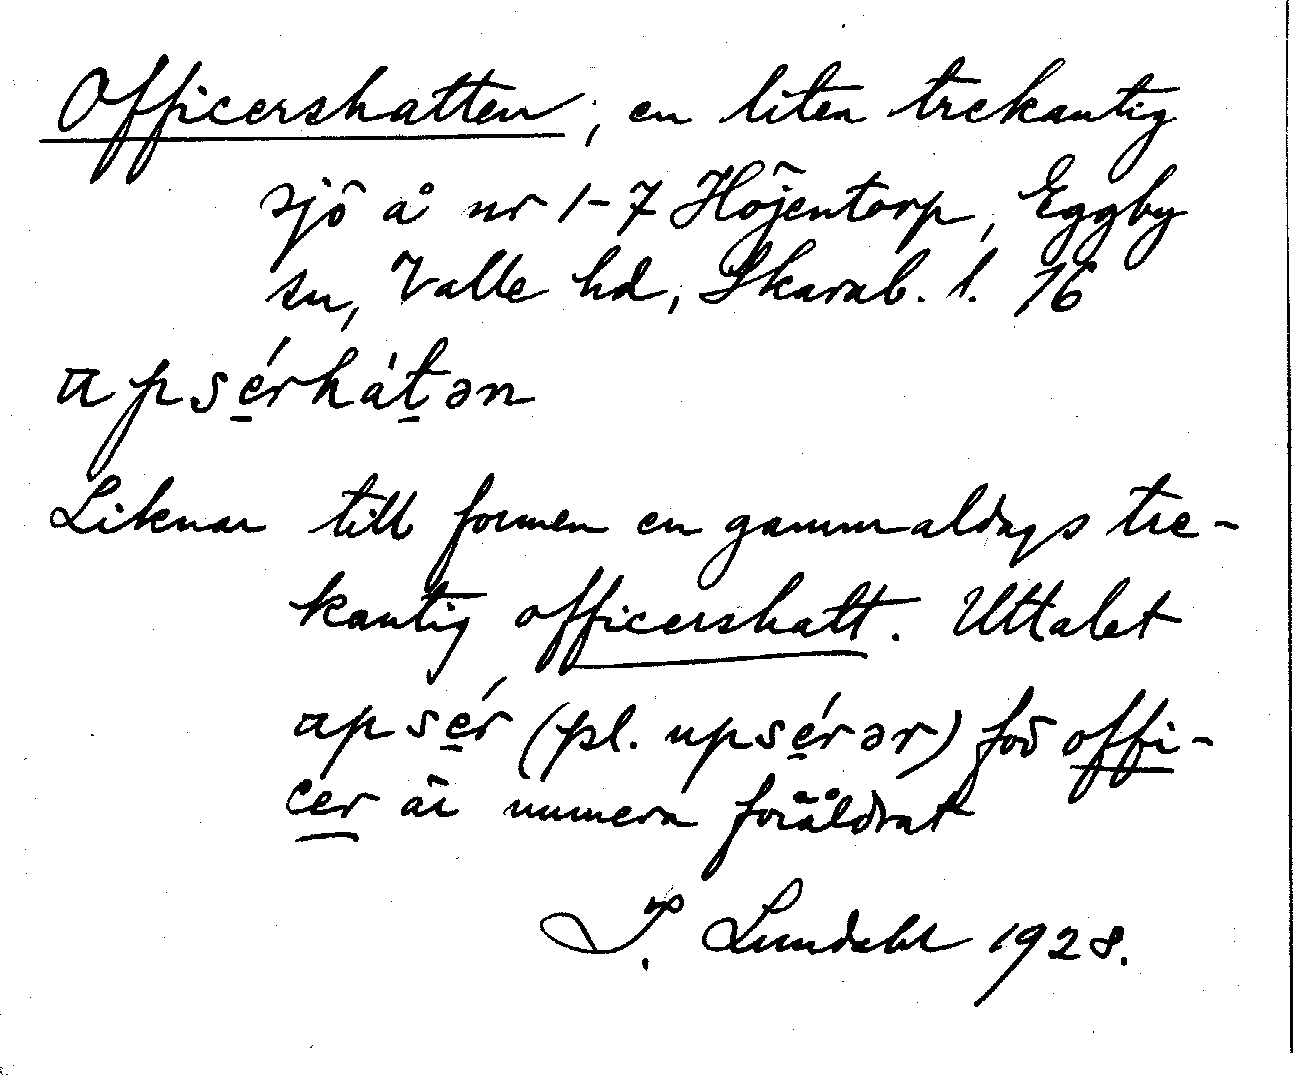 Officershatten, en liten trekantig
sjö å nr 1-7 Höjentorp, Eggby
sn, Valle hd, Skarab. l. 76
apsérhátən
Liknar till formen en gammaldags tre-
kantig officershatt. Uttalet
apsér (pl. upsérər) för offi-
cer är numera föråldrat
I. Lundahl 1928.